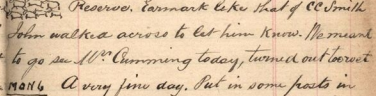 Reserve. Earmark like that of CC Smith
John walked across to let him know. He meant
to go see Mrs Cumming today, turned out too wet
MON 6 A very fine day. Put in some posts in